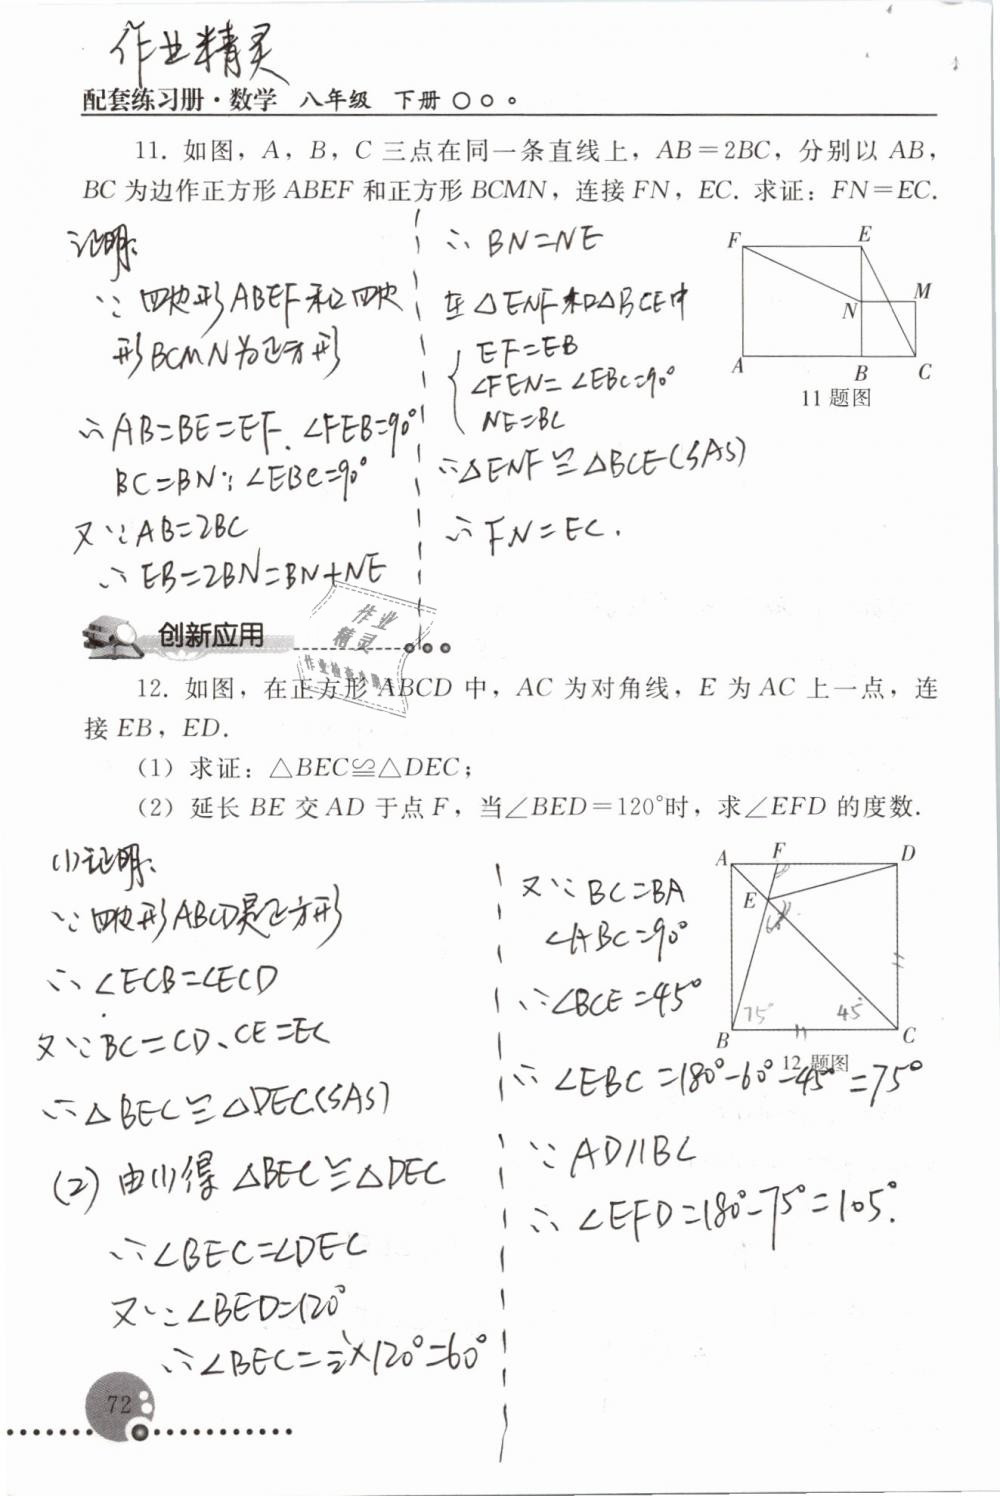 作业精灵
配套练习册·数学 八年级 下册
11. 如图，A，B，C 三点在同一条直线上，AB＝2BC，分别以 AB，
BC 为边作正方形 ABEF 和正方形 BCMN，连接 FN，EC. 求证：FN＝EC.
证明:
∵ 四边形ABEF和四边
形BCMN为正方形
∴ AB=BE=EF. ∠FEB=90°
BC=BN; ∠EBC=90°
又∵AB=2BC
∴ EB=2BN=BN+NE
∴ BN=NE
在△ENF和△BCE中
EF=EB
∠FEN=∠EBC=90°
NE=BC
∴△ENF≌△BCE(SAS)
∴ FN=EC.
F E
N M
A B C
11 题图
创新应用
作业
精灵
12. 如图，在正方形 ABCD 中，AC 为对角线，E 为 AC 上一点，连
接 EB，ED.
（1）求证：△BEC≌△DEC；
（2）延长 BE 交 AD 于点 F，当∠BED＝120°时，求∠EFD 的度数.
(1)证明:
∵四边形ABCD是正方形
∴∠ECB=∠ECD
又∵BC=CD、CE=EC
∴△BEC≌△DEC(SAS)
(2) 由(1)得 △BEC≌△DEC
∴∠BEC=∠DEC
又∵∠BED=120°
∴∠BEC=½×120°=60°
又∵BC=BA
∠ABC=90°
∴∠BCE=45°
∴ ∠EBC=180°-60°-45°=75°
∵ AD//BC
∴ ∠EFD=180°-75°=105°.
A F D
E
75° 45°
B C
12 题图
72